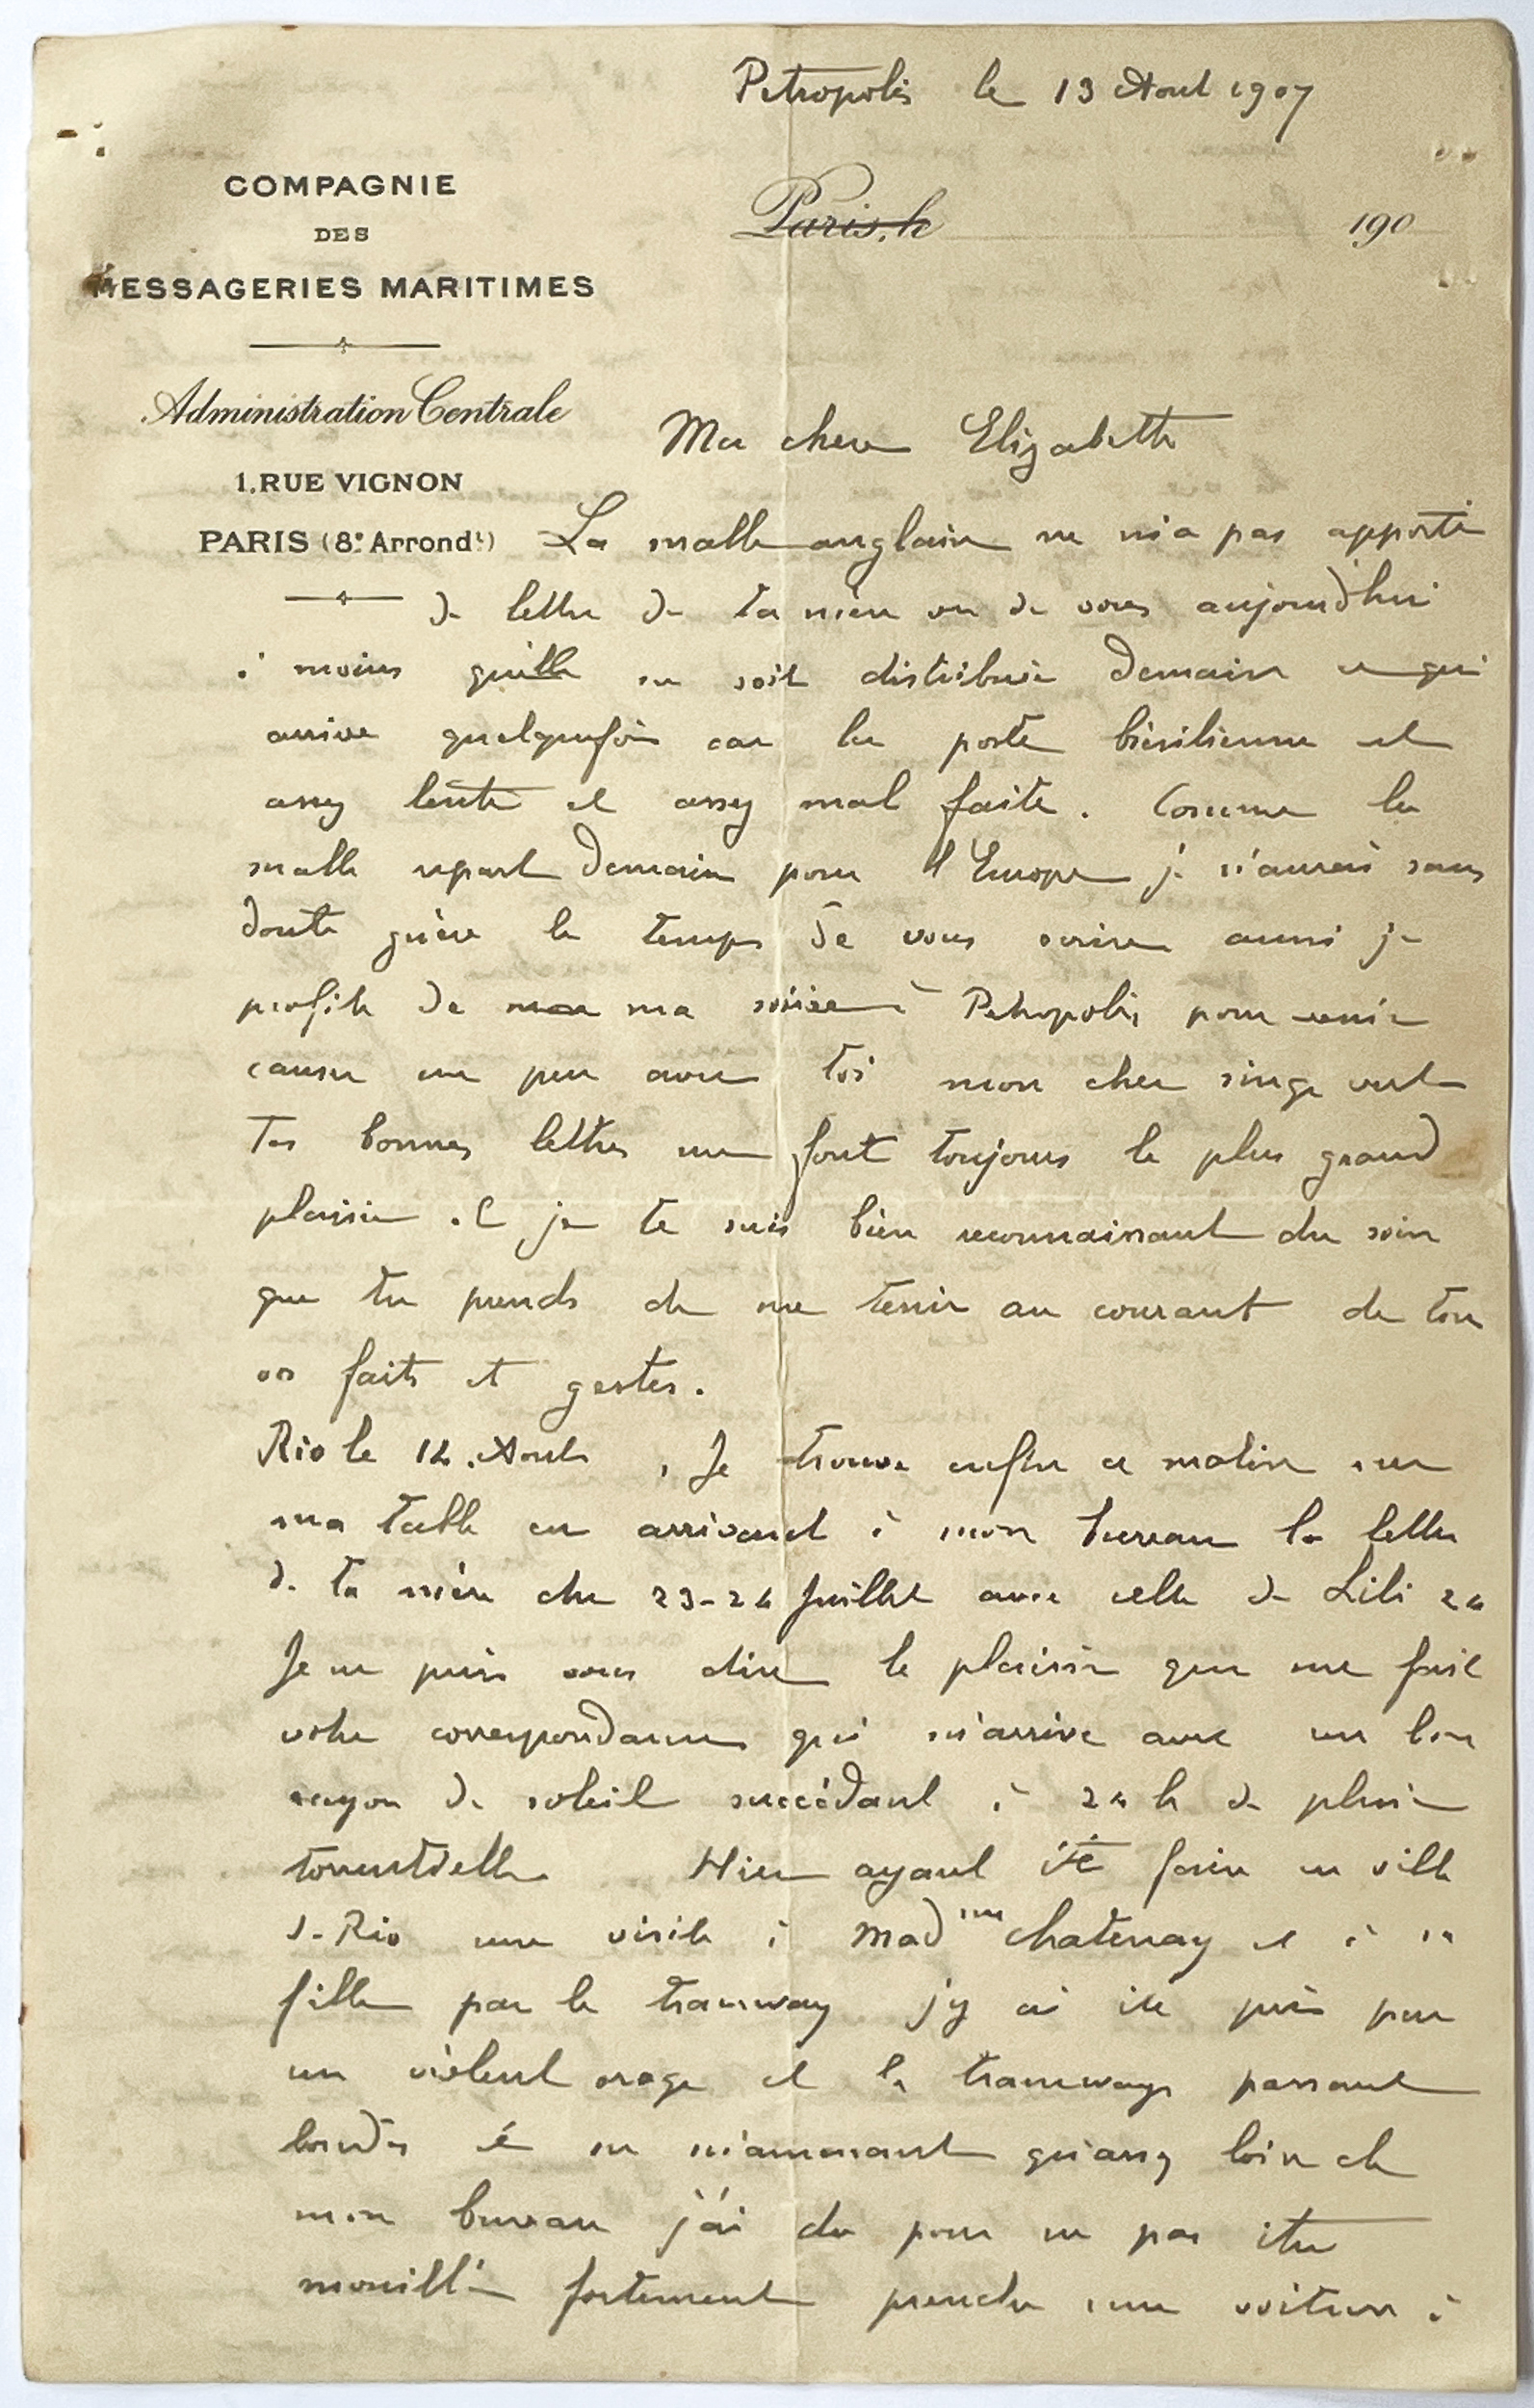 Petropolis le 13 Aout 1907
COMPAGNIE
DES
MESSAGERIES MARITIMES
Paris, le 190
Administration Centrale
1, RUE VIGNON
PARIS (8e Arrondt)
Ma chere Elizabeth
La malle anglaise ne m'a pas apporté
de lettre de ta mère ou de vous aujourd'hui
à moins qu'elle ne soit distribuée demain ce qui
arrive quelquefois car la poste brésilienne est
assez lente et assez mal faite. Comme la
malle repart demain pour l'Europe je n'aurai sans
doute guère le temps de vous écrire aussi je
profite de ma soirée à Petropolis pour venir
causer un peu avec toi mon cher singe vert
Tes bonnes lettres me font toujours le plus grand
plaisir et je te suis bien reconnaissant du soin
que tu prends de me tenir au courant de tous
vos faits et gestes.
Rio le 14 Aout, Je trouve enfin ce matin sur
ma table en arrivant à mon bureau la lettre
de ta mère du 23-24 Juillet avec celle de Lili 24
Je ne puis vous dire le plaisir que me fait
votre correspondance qui m'arrive avec un bon
rayon de soleil succédant à 24 h de pluie
torrentielle Hier ayant été faire en ville
de Rio une visite à Madme Chatenay et à sa
fille par le tramway j'y ai été pris par
un violent orage et les tramways passant
bondés et ne m'amenant qu'assez loin de
mon bureau j'ai du pour ne pas être
mouillé fortement prendre une voiture à